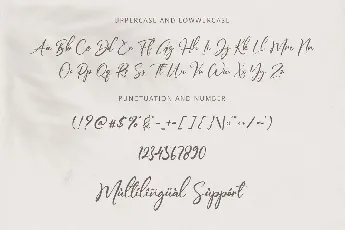 UPPERCASE AND LOWWERCASE
Aa Bb Cc Dd Ee Ff Gg Hh Ii Jj Kk Ll Mm Nn
Oo Pp Qq Rr Ss Tt Uu Vv Ww Xx Yy Zz
PUNCTUATION AND NUMBER
(!?@#$%&*-_+=[][]\|:"<>/~")
1234567890
Mültïlïngüäl Süppört